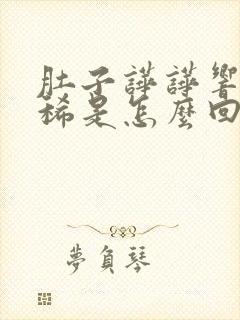 肚子譁譁響
稀是怎麼回
夢負琴